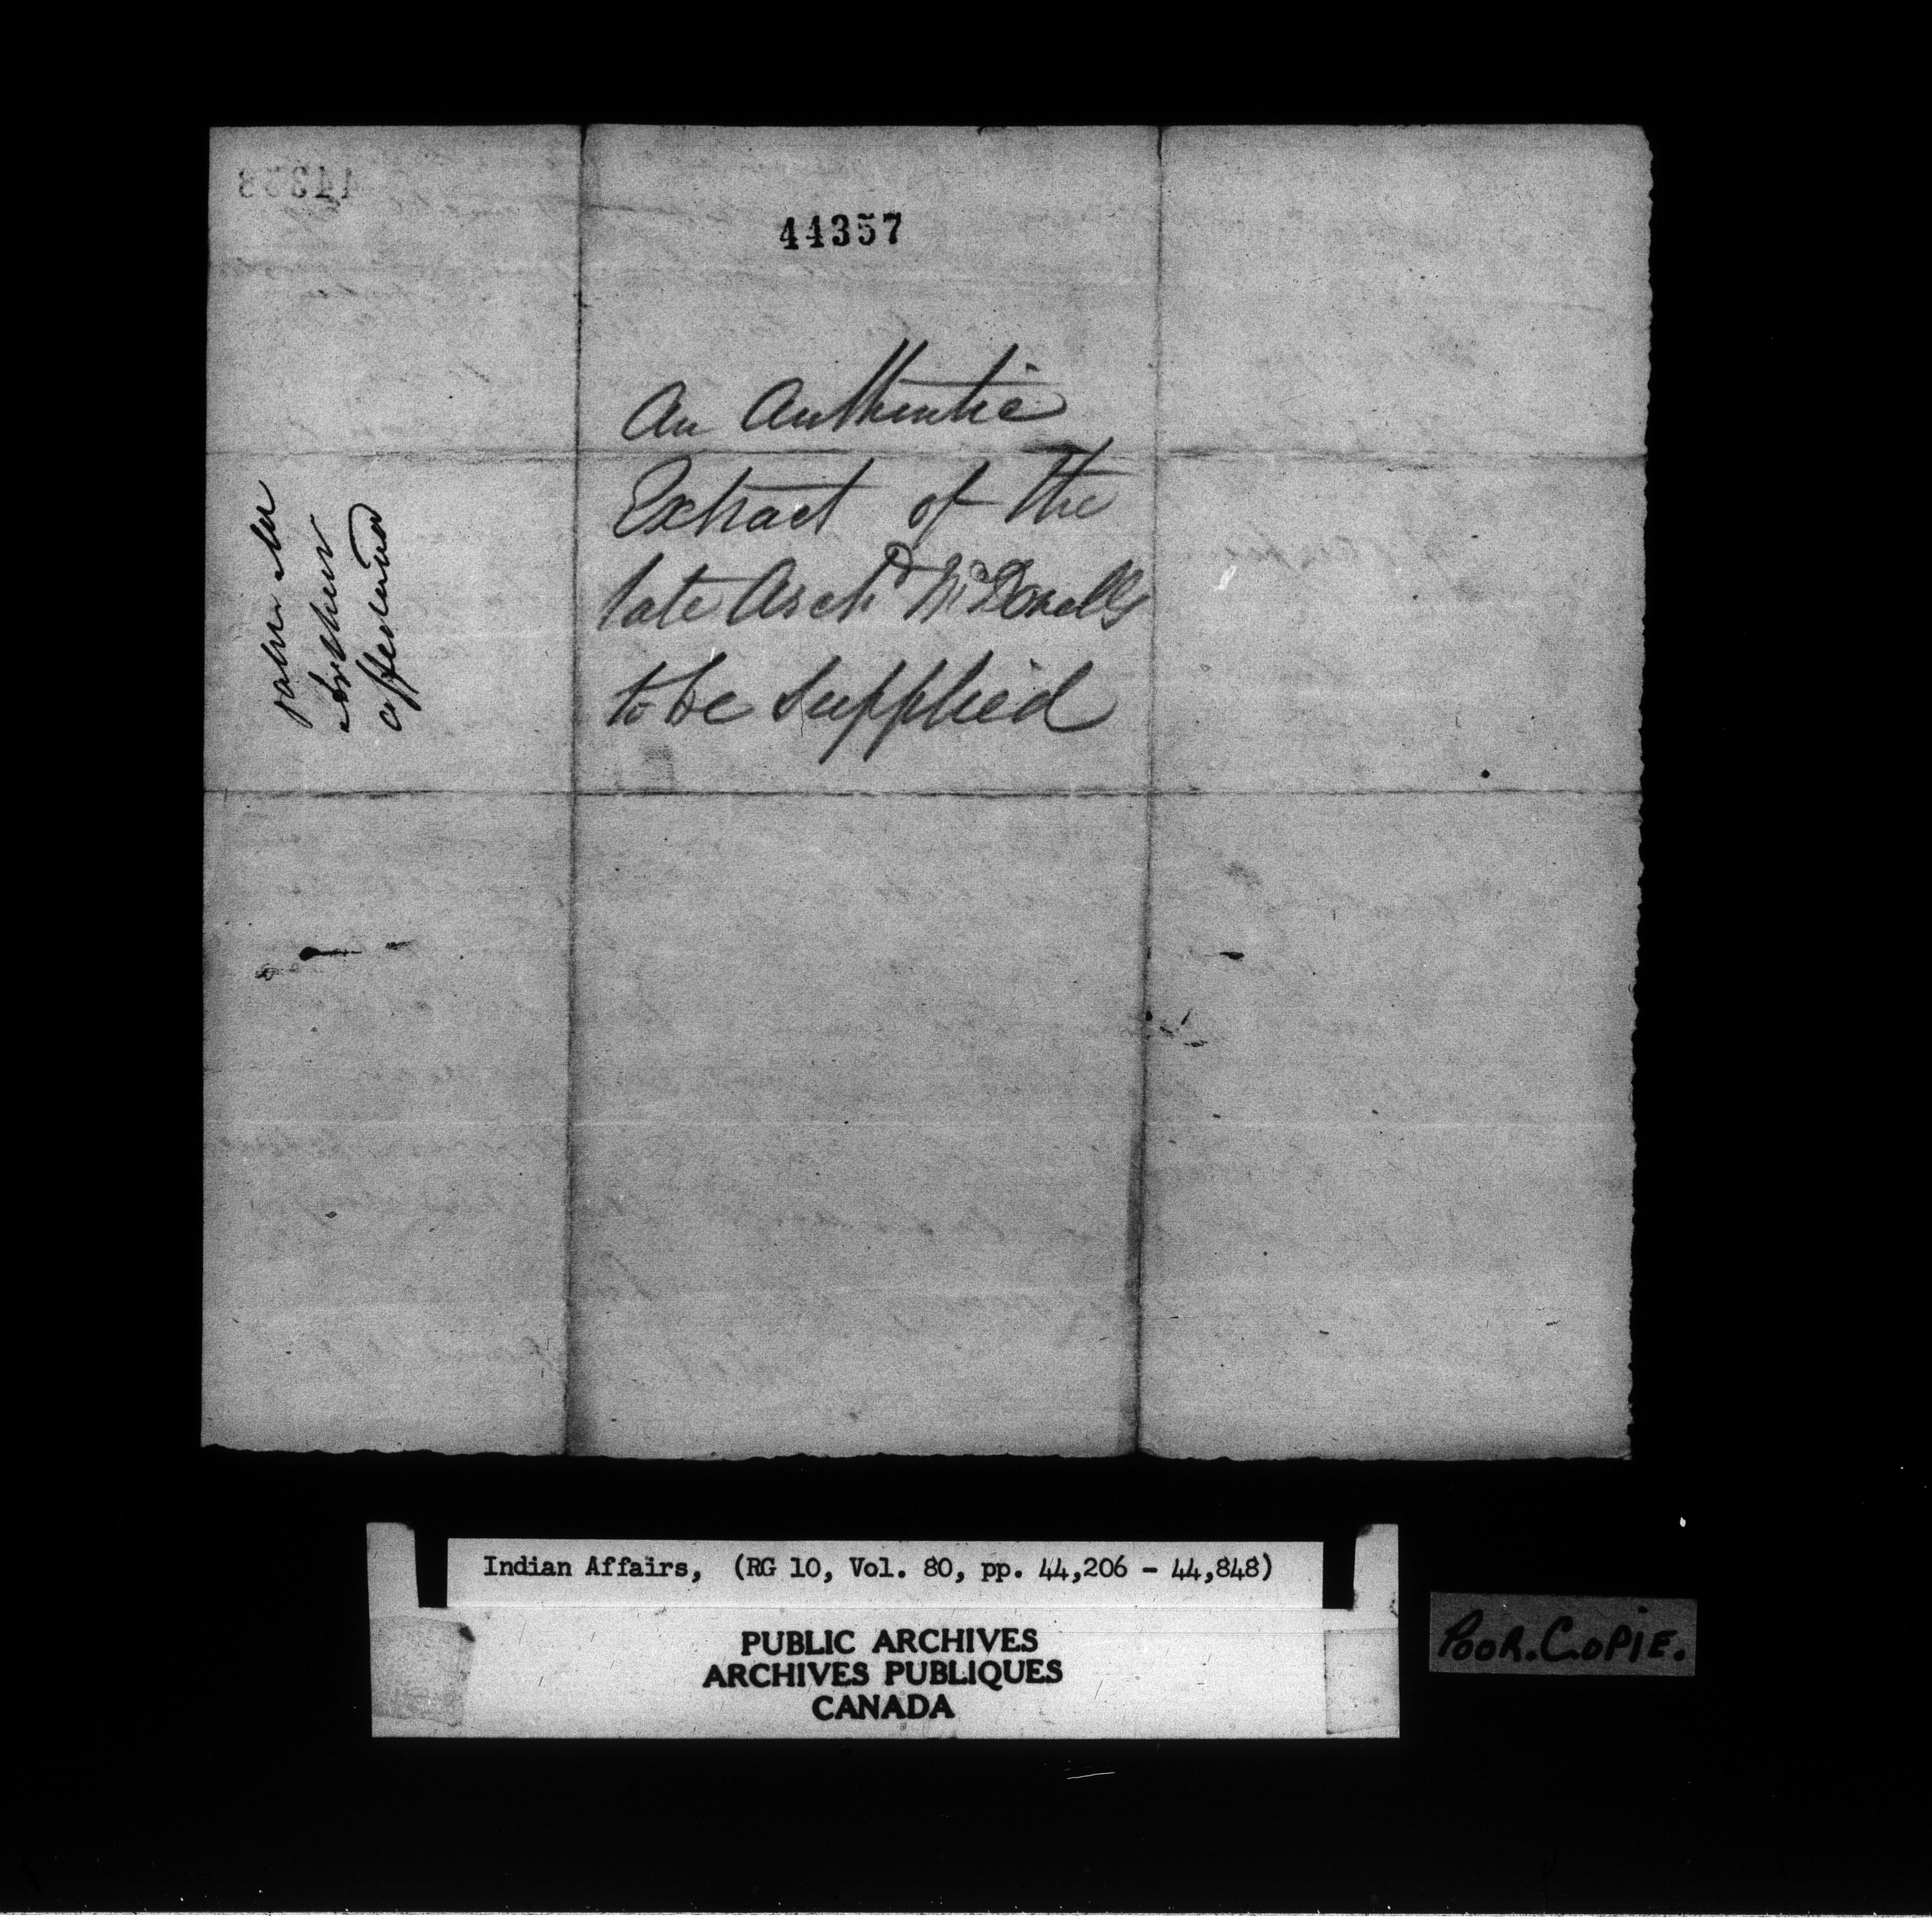 44357
An Authentic
Extract of the
late Archd McDonells
to be supplied
Indian Affairs, (RG 10, Vol. 80, pp. 44,206 - 44,848)
PUBLIC ARCHIVES
ARCHIVES PUBLIQUES
CANADA
POOR.COPIE.